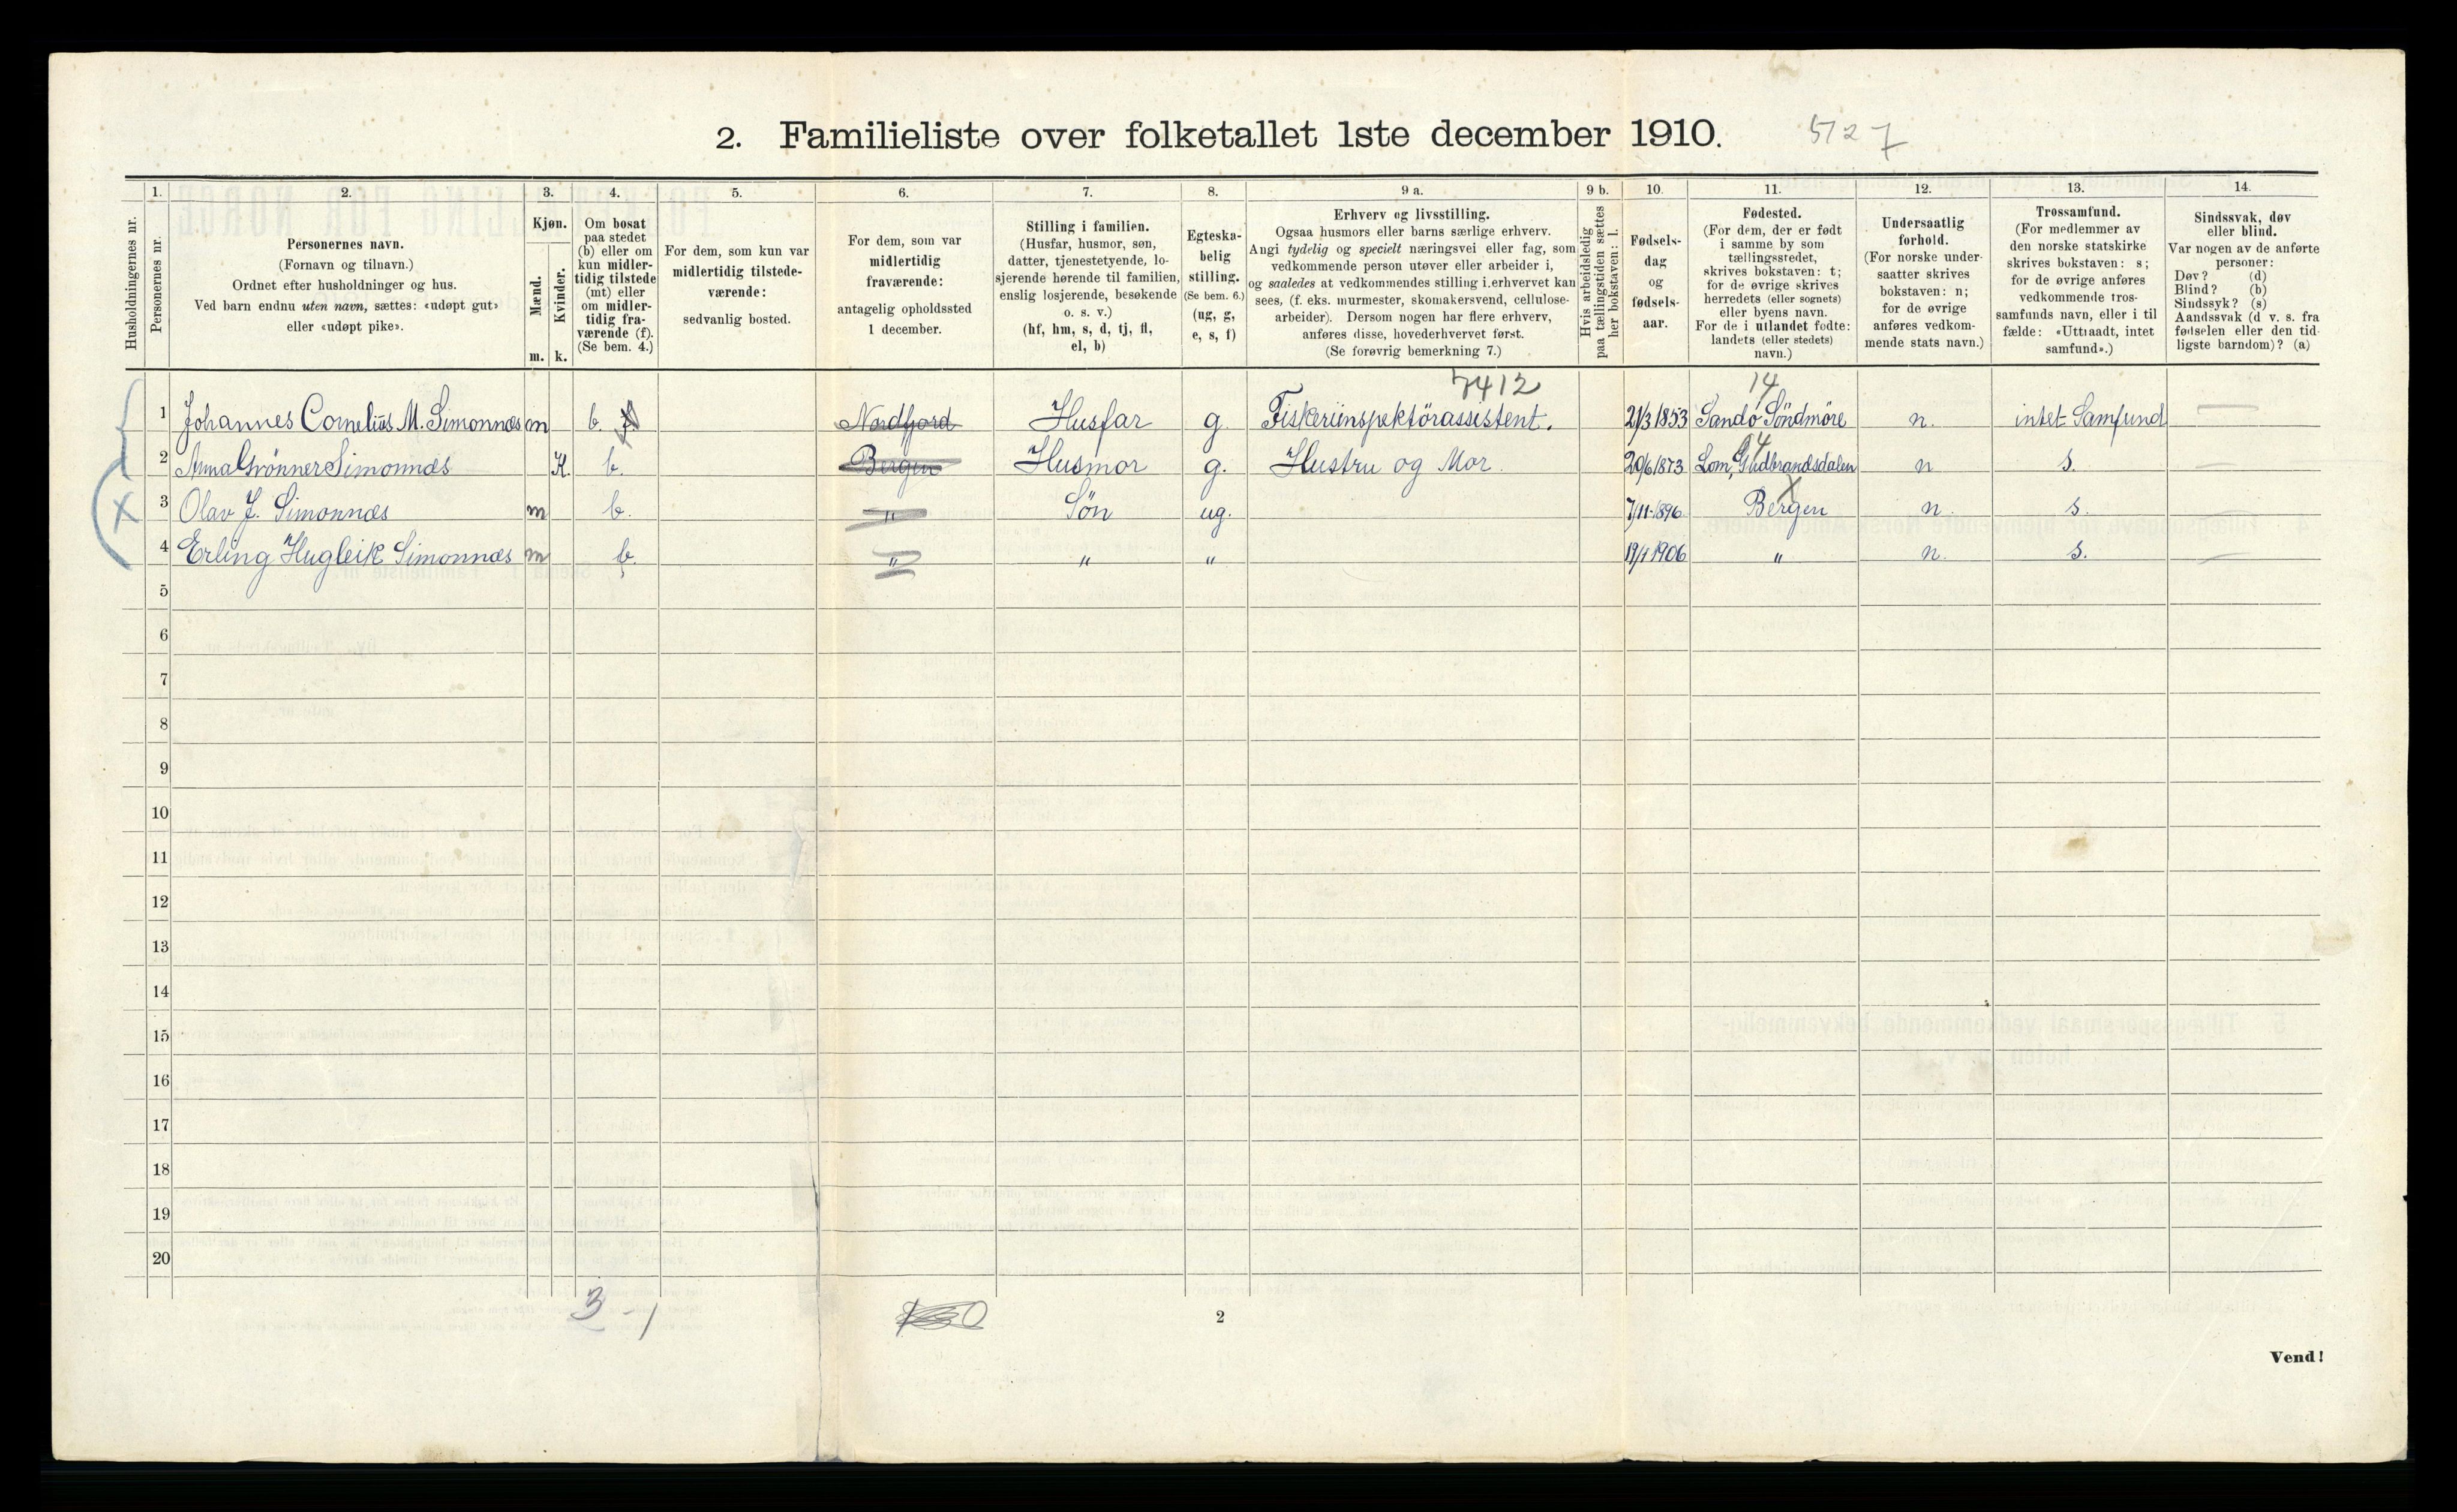 2. Familieliste over folketallet 1ste december 1910. 5127
1. 2. 3. 4. 5. 6. 7. 8. 9 a. 9 b. 10. 11. 12. 13. 14.
Husholdningernes nr.
Personernes nr.
Personernes navn.
(Fornavn og tilnavn.)
Ordnet efter husholdninger og hus.
Ved barn endnu uten navn, sættes: «udøpt gut»
eller «udøpt pike».
Kjøn.
Mænd.
Kvinder.
m. k.
Om bosat
paa stedet
(b) eller om
kun midler-
tidig tilstede
(mt) eller
om midler-
tidig fra-
værende (f).
(Se bem. 4.)
For dem, som kun var
midlertidig tilstede-
værende:
sedvanlig bosted.
For dem, som var
midlertidig
fraværende:
antagelig opholdssted
1 december.
Stilling i familien.
(Husfar, husmor, søn,
datter, tjenestetyende, lo-
sjerende hørende til familien,
enslig losjerende, besøkende
o. s. v.)
(hf, hm, s, d, tj, fl,
el, b)
Egteska-
belig
stilling.
(Se bem. 6.)
(ug, g,
e, s, f)
Erhverv og livsstilling.
Ogsaa husmors eller barns særlige erhverv.
Angi tydelig og specielt næringsvei eller fag, som
vedkommende person utøver eller arbeider i,
og saaledes at vedkommendes stilling i erhvervet kan
sees, (f. eks. murmester, skomakersvend, cellulose-
arbeider). Dersom nogen har flere erhverv,
anføres disse, hovederhvervet først.
(Se forøvrig bemerkning 7.)
Hvis arbeidsledig
paa tællingstiden sættes
her bokstaven: l.
Fødsels-
dag
og
fødsels-
aar.
Fødested.
(For dem, der er født
i samme by som
tællingsstedet,
skrives bokstaven: t;
for de øvrige skrives
herredets (eller sognets)
eller byens navn.
For de i utlandet fødte:
landets (eller stedets)
navn.)
Undersaatlig
forhold.
(For norske under-
saatter skrives
bokstaven: n;
for de øvrige
anføres vedkom-
mende stats navn.)
Trossamfund.
(For medlemmer av
den norske statskirke
skrives bokstaven: s;
for de øvrige anføres
vedkommende tros-
samfunds navn, eller i til
fælde: «Uttraadt, intet
samfund».)
Sindssvak, døv
eller blind.
Var nogen av de anførte
personer:
Døv? (d)
Blind? (b)
Sindssyk? (s)
Aandssvak (d v. s. fra
fødselen eller den tid-
ligste barndom)? (a)
7412 14
1 Johannes Cornelius M. Simonnæs m b. f Nordfjord Husfar g. Fiskeriinspektörassistent. 21/3 1853 Sandö Söndmöre n. intet Samfund —
14
2 Anna Grönner Simonnæs K. b. Bergen Husmor g. Hustru og Mor. 20/6 1873 Lom, Gudbrandsdalen n s. —
X
3 Olav J. Simonnæs m b. " Søn ug. 7/11-1896 Bergen n. s. —
4 Erling Hugleik Simonnæs m b. " " " 19/1 1906 " n. s. —
X
5
6
7
8
9
10
11
12
13
14
15
16
17
18
19
20
3 - 1
2
Vend!